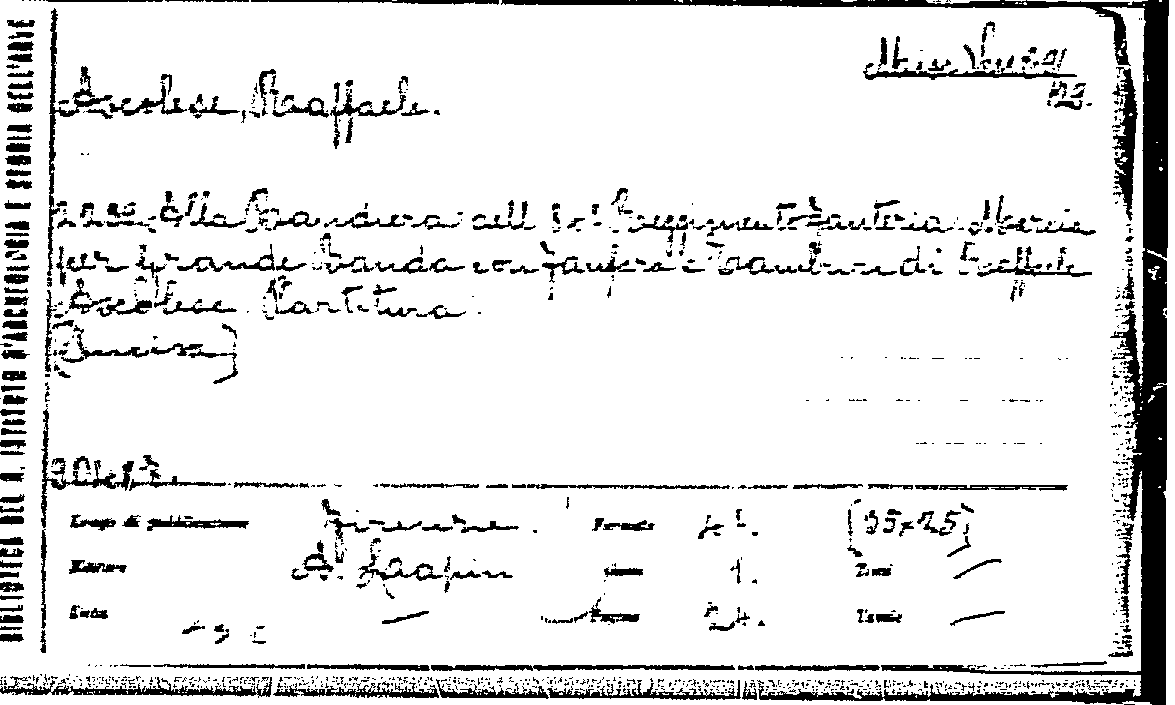 BIBLIOTECA DEL R. ISTITUTO D'ARCHEOLOGIA E STORIA DELL'ARTE
Ascolese, Raffaele.
Alla Bandiera dell' Reggimento Fanteria. Marcia
per Grande Banda con Fanfara e Tamburi di Raffaele
Ascolese. Partitura.
(Incisa)
Luogo di pubblicazione Firenze. Formato 4º. (35x25)
Editore A. Lapini 1. Tomi —
Data — Pagine 24. Tavole —